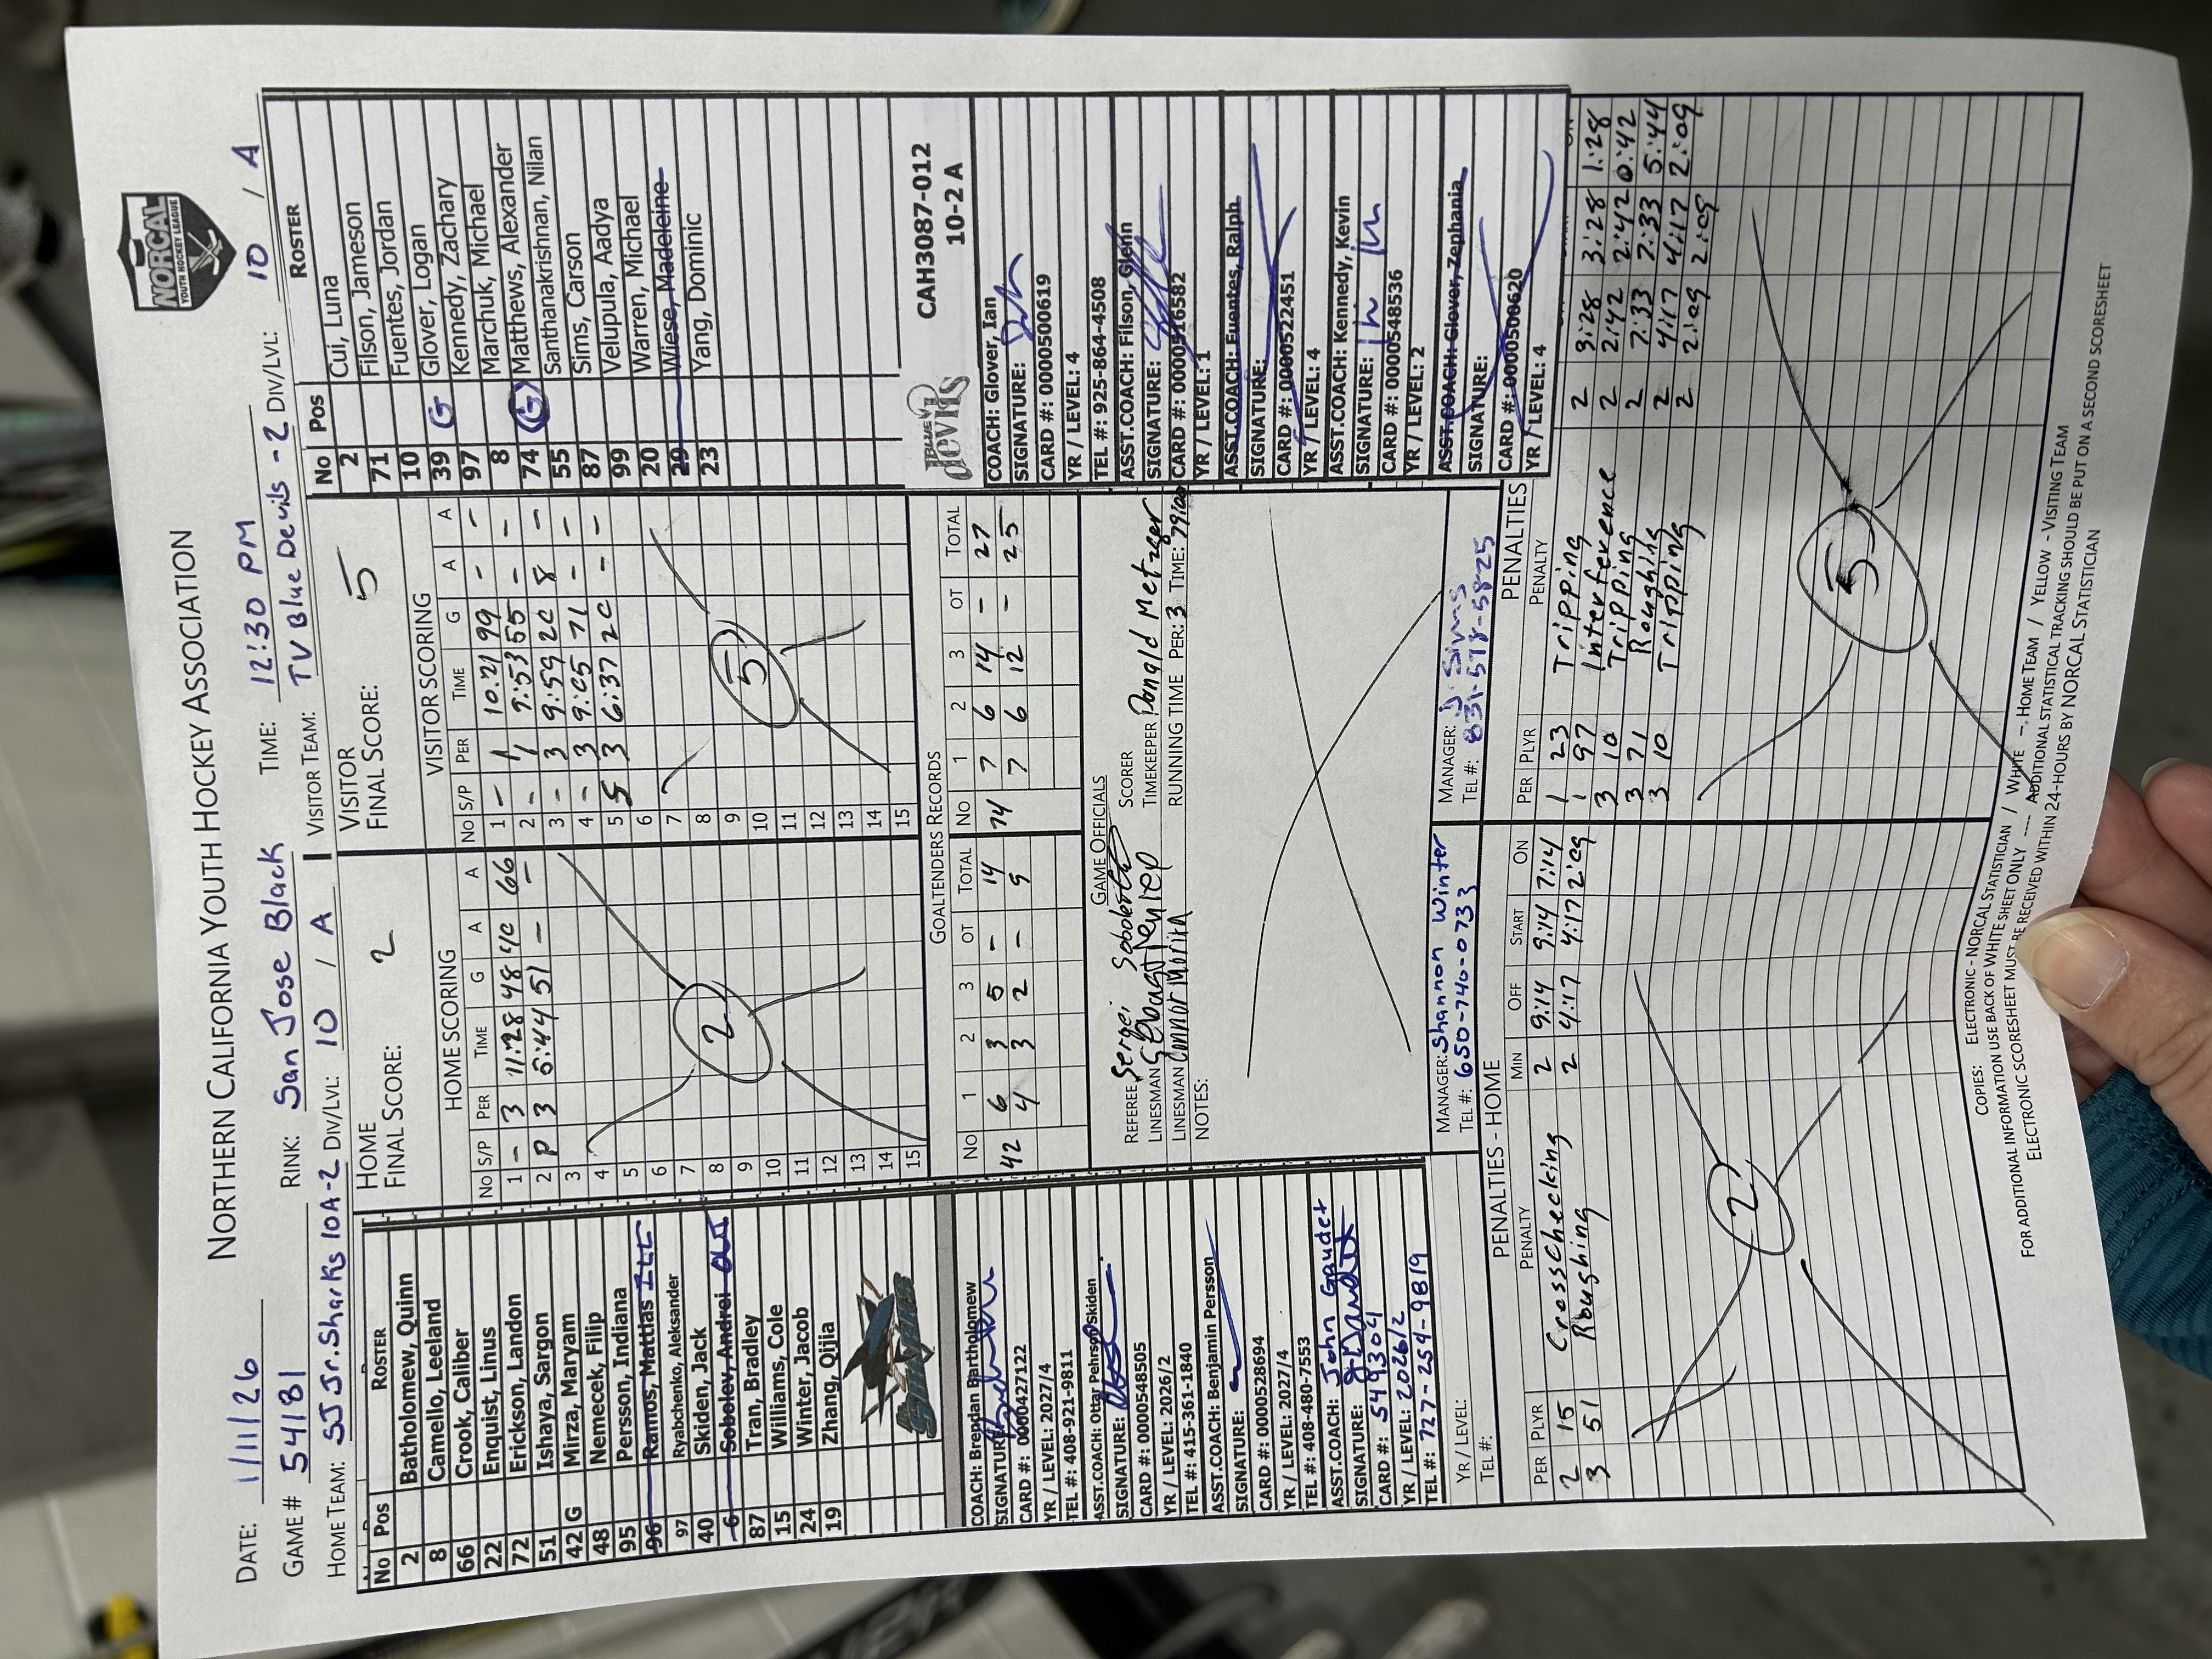 NORTHERN CALIFORNIA YOUTH HOCKEY ASSOCIATION
NORCAL
YOUTH HOCKEY LEAGUE
DATE: 1/11/26
GAME # 54181 RINK: San Jose Black TIME: 12:30 PM
HOME TEAM: SJ Jr. Sharks 10A-2 DIV/LVL: 10 / A VISITOR TEAM: TV Blue Devils -2 DIV/LVL: 10 / A
No Pos ROSTER
2 Batholomew, Quinn
8 Camello, Leeland
66 Crook, Caliber
22 Enquist, Linus
72 Erickson, Landon
51 Ishaya, Sargon
42 G Mirza, Maryam
48 Nemecek, Filip
95 Persson, Indiana
96 Ramos, Mattias ILL
97 Ryabchenko, Aleksander
40 Skiden, Jack
6 Sobolev, Andrei Out
87 Tran, Bradley
15 Williams, Cole
24 Winter, Jacob
19 Zhang, Qijia
COACH: Brendan Bartholomew
SIGNATURE:
CARD #: 0000427122
YR / LEVEL: 2027/4
TEL #: 408-921-9811
ASST.COACH: Ottar Pehrson Skiden
SIGNATURE:
CARD #: 0000548505
YR / LEVEL: 2026/2
TEL #: 415-361-1840
ASST.COACH: Benjamin Persson
SIGNATURE:
CARD #: 0000528694
YR / LEVEL: 2027/4
TEL #: 408-480-7553
ASST.COACH: John Gaudet
SIGNATURE:
CARD #: 5493041
YR / LEVEL: 2026/2
TEL #: 727-254-9819
YR / LEVEL:
TEL #:
HOME
FINAL SCORE: 2
HOME SCORING
No S/P PER TIME G A A
1 - 3 11:28 48 40 66
2 P 3 5:44 51 - -
3
4
5
6
7
8
9
10
11
12
13
14
15
2
VISITOR
FINAL SCORE: 5
VISITOR SCORING
No S/P PER TIME G A A
1 - 1 10:21 99 - -
2 - 1 9:53 55 - -
3 - 3 9:59 20 8 -
4 - 3 9:05 71 - -
5 S 3 6:37 20 - -
6
7
8
9
10
11
12
13
14
15
5
GOALTENDERS RECORDS
No 1 2 3 OT TOTAL
42 6 3 5 - 14
4 3 2 - 9
No 1 2 3 OT TOTAL
74 7 6 14 - 27
7 6 12 - 25
GAME OFFICIALS
REFEREE Sergei
LINESMAN
LINESMAN Connor Morin
SCORER
TIMEKEEPER Donald Metzger
RUNNING TIME PER: 3 TIME:
NOTES:
MANAGER: Shannon Winter
TEL #: 650-740-0733
MANAGER: J Sims
TEL #: 831-578-5825
No Pos ROSTER
2 Cui, Luna
71 Filson, Jameson
10 Fuentes, Jordan
39 G Glover, Logan
97 Kennedy, Zachary
8 Marchuk, Michael
74 G Matthews, Alexander
55 Santhanakrishnan, Nilan
87 Sims, Carson
99 Velupula, Aadya
20 Warren, Michael
29 Wiese, Madeleine
23 Yang, Dominic
BLUE devils
CAH3087-012
10-2 A
COACH: Glover, Ian
SIGNATURE:
CARD #: 0000500619
YR / LEVEL: 4
TEL #: 925-864-4508
ASST.COACH: Filson, Glenn
SIGNATURE:
CARD #: 0000516582
YR / LEVEL: 1
ASST.COACH: Fuentes, Ralph
SIGNATURE:
CARD #: 0000522451
YR / LEVEL: 4
ASST.COACH: Kennedy, Kevin
SIGNATURE:
CARD #: 0000548536
YR / LEVEL: 2
ASST.COACH: Glover, Zephania
SIGNATURE:
CARD #: 0000500620
YR / LEVEL: 4
PENALTIES - HOME
PER PLYR PENALTY MIN OFF START ON
2 15 Crosschecking 2 9:14 9:14 7:14
3 51 Roughing 2 4:17 4:17 2:09
2
PENALTIES
PER PLYR PENALTY
1 23 Tripping 2 3:28 3:28 1:28
1 97 Interference 2 2:42 2:42 0:42
3 10 Tripping 2 7:33 7:33 5:44
3 71 Roughing 2 4:17 4:17 2:09
3 10 Tripping 2 2:09 2:09
5
COPIES: ELECTRONIC - NORCAL STATISTICIAN / WHITE - HOME TEAM / YELLOW - VISITING TEAM
FOR ADDITIONAL INFORMATION USE BACK OF WHITE SHEET ONLY ---- ADDITIONAL STATISTICAL TRACKING SHOULD BE PUT ON A SECOND SCORESHEET
ELECTRONIC SCORESHEET MUST BE RECEIVED WITHIN 24-HOURS BY NORCAL STATISTICIAN